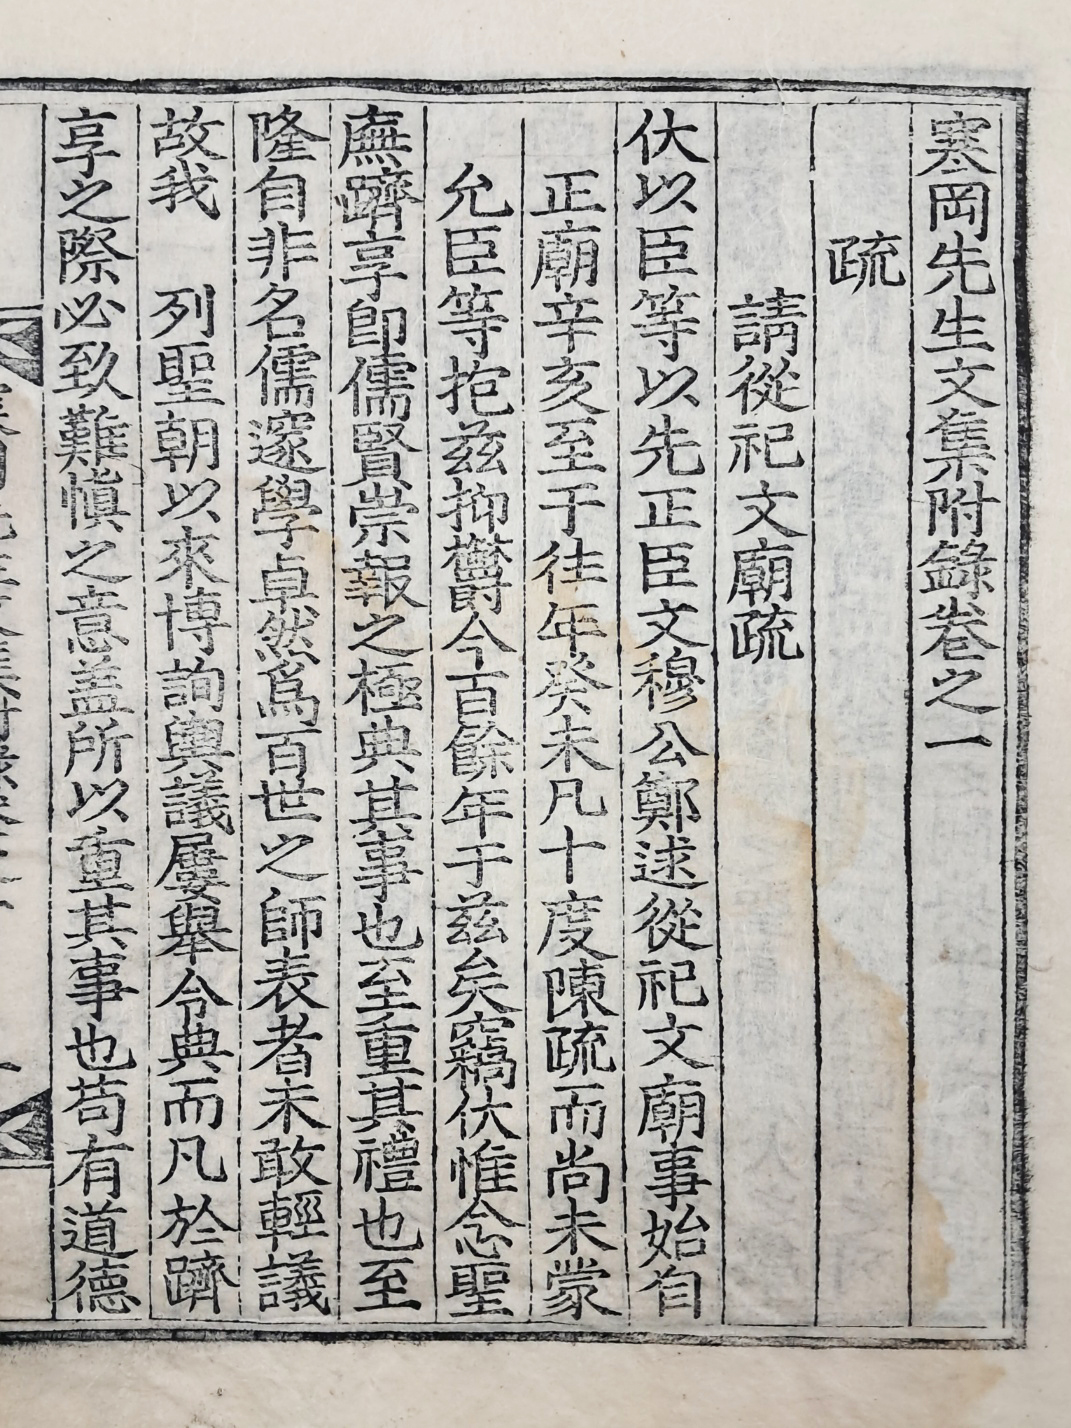 寒岡先生文集附錄卷之一
疏
請從祀文廟疏
伏以臣等以先正臣文穆公鄭逑從祀文廟事始自
正廟辛亥至于往年癸未凡十度陳疏而尚未蒙
允臣等抱玆抑欝今百餘年于玆矣竊伏惟念聖
廡躋享卽儒賢崇報之極典其事也至重其禮也至
隆自非名儒邃學卓然爲百世之師表者未敢輕議
故我 列聖朝以來博詢輿議屢舉令典而凡於躋
享之際必致難愼之意盖所以重其事也苟有道德